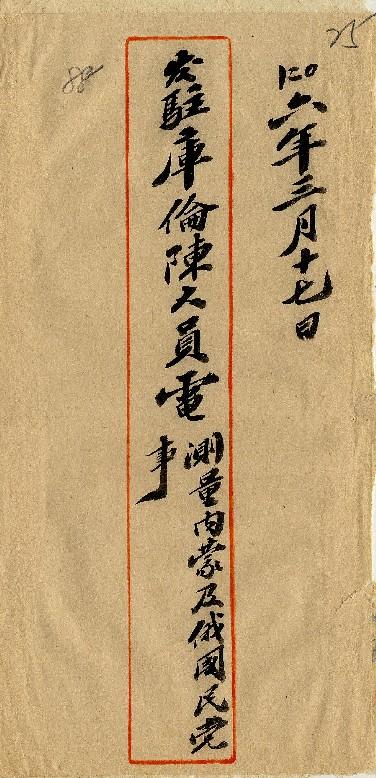 25
六年三月十七日
发駐庫倫陳大員電
測量内蒙及俄國民党
事
88